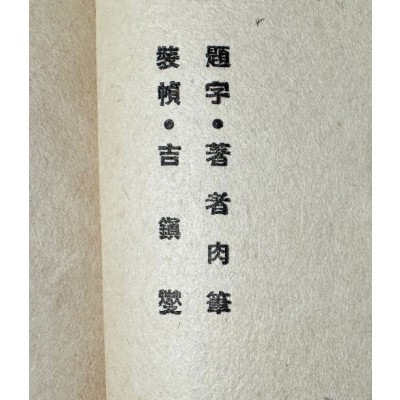 題字・著者肉筆
裝幀・吉鎭燮